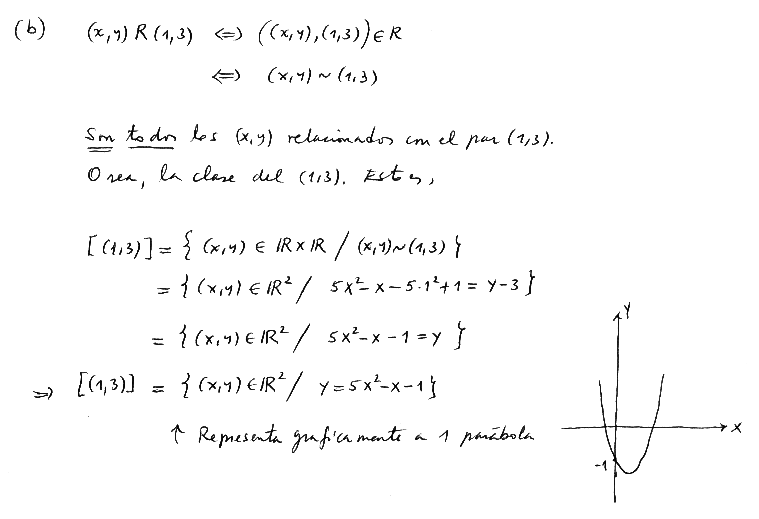 (b) (x,y) R (1,3) ⇔ ((x,y),(1,3)) ∈ R
⇔ (x,y) ~ (1,3)
Son todos los (x,y) relacionados con el par (1,3).
O sea, la clase del (1,3). Esto es,
[(1,3)] = { (x,y) ∈ ℝ×ℝ / (x,y)~(1,3) }
= { (x,y) ∈ ℝ² / 5x²-x-5·1²+1 = y-3 }
= { (x,y) ∈ ℝ² / 5x²-x-1 = y }
⇒ [(1,3)] = { (x,y) ∈ ℝ² / y = 5x²-x-1 }
↑ Representa graficamente a 1 parábola
Y
X
-1